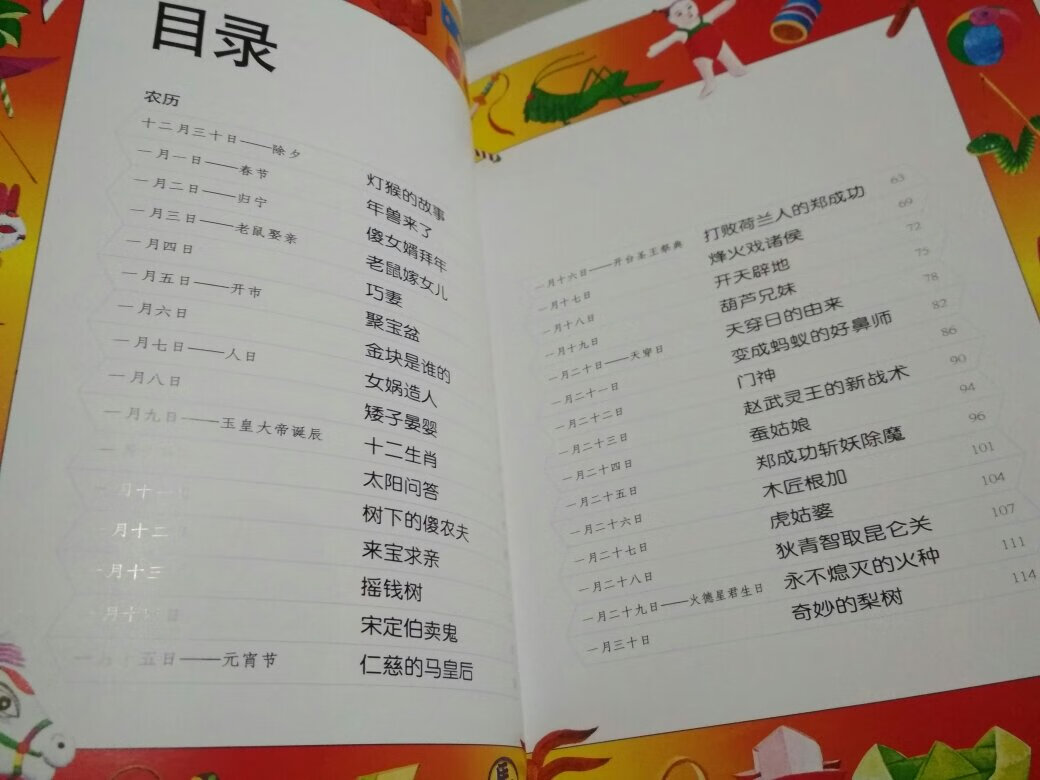 目录
农历
十二月三十日——除夕 灯猴的故事
一月一日——春节 年兽来了
一月二日——归宁 傻女婿拜年
一月三日——老鼠娶亲 老鼠嫁女儿
一月四日 巧妻
一月五日——开市 聚宝盆
一月六日 金块是谁的
一月七日——人日 女娲造人
一月八日 矮子晏婴
一月九日——玉皇大帝诞辰 十二生肖
太阳问答
月十一 树下的傻农夫
月十二 来宝求亲
月十三 摇钱树
月十 宋定伯卖鬼
一月十五日——元宵节 仁慈的马皇后
一月十六日——开台圣王祭典 打败荷兰人的郑成功 63
一月十七日 烽火戏诸侯 69
一月十八日 开天辟地 72
一月十九日 葫芦兄妹 75
一月二十日——天穿日 天穿日的由来 78
一月二十一日 变成蚂蚁的好鼻师 82
一月二十二日 门神 86
一月二十三日 赵武灵王的新战术 90
一月二十四日 蚕姑娘 94
一月二十五日 郑成功斩妖除魔 96
一月二十六日 木匠根加 101
一月二十七日 虎姑婆 104
一月二十八日 狄青智取昆仑关 107
一月二十九日——火德星君生日 永不熄灭的火种 111
一月三十日 奇妙的梨树 114